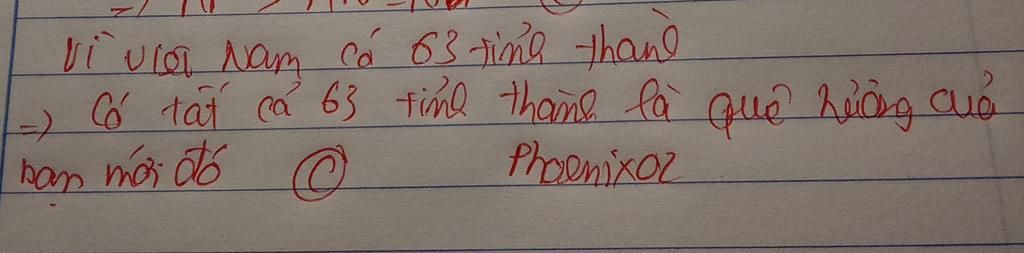 Vì Việt Nam có 63 tỉnh thành
=> Có tất cả 63 tỉnh thành là quê hương của
bạn mới đó © Phoenixoz